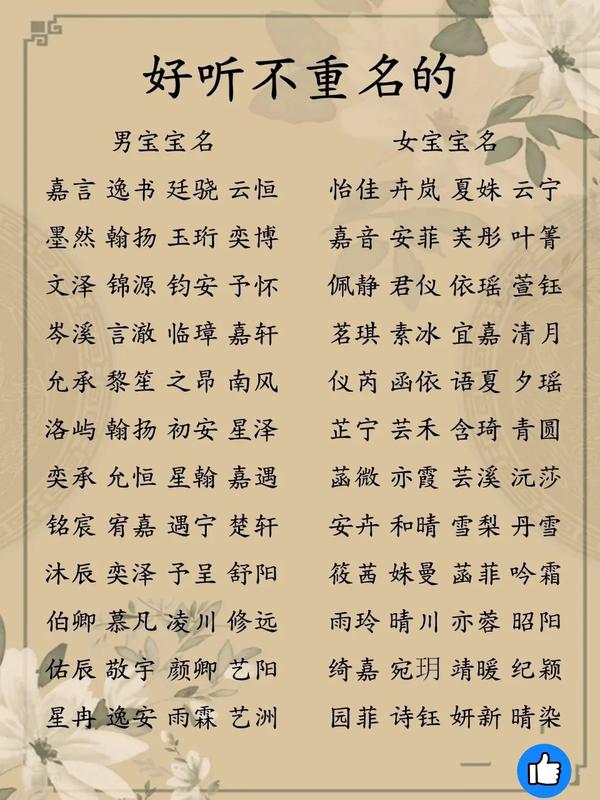 好听不重名的
男宝宝名 女宝宝名
嘉言 逸书 廷骁 云恒 怡佳 卉岚 夏姝 云宁
墨然 翰扬 玉珩 奕博 嘉音 安菲 芙彤 叶箐
文泽 锦源 钧安 予怀 佩静 君仪 依瑶 萱钰
岑溪 言澈 临璋 嘉轩 茗琪 素冰 宜嘉 清月
允承 黎笙 之昂 南风 仪芮 函依 语夏 夕瑶
洛屿 翰扬 初安 星泽 芷宁 芸禾 含琦 青圆
奕承 允恒 星翰 嘉遇 菡微 亦霞 芸溪 沅莎
铭宸 宥嘉 遇宁 楚轩 安卉 和晴 雪梨 丹雪
沐辰 奕泽 予呈 舒阳 筱茜 姝曼 菡菲 吟霜
伯卿 慕凡 凌川 修远 雨玲 晴川 亦蓉 昭阳
佑辰 敬宇 颜卿 艺阳 绮嘉 宛玥 靖暖 纪颖
星冉 逸安 雨霖 艺洲 园菲 诗钰 妍新 晴染